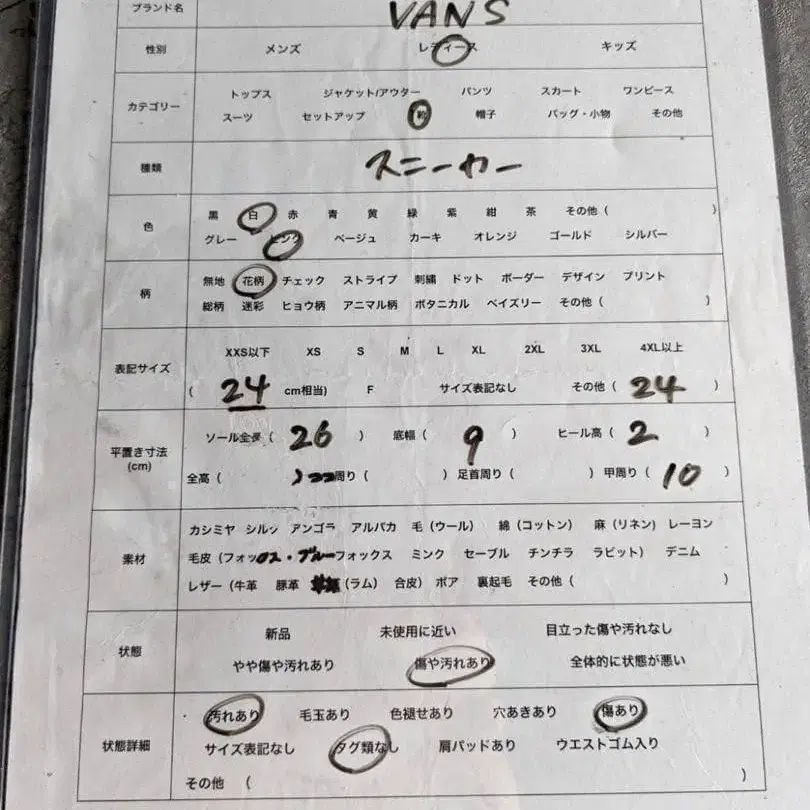 ブランド名 VANS
性別 メンズ レディース キッズ
カテゴリー トップス ジャケット/アウター パンツ スカート ワンピース
スーツ セットアップ 靴 帽子 バッグ・小物 その他
種類 スニーカー
色 黒 白 赤 青 黄 緑 紫 紺 茶 その他 ( )
グレー ピンク ベージュ カーキ オレンジ ゴールド シルバー
柄 無地 花柄 チェック ストライプ 刺繍 ドット ボーダー デザイン プリント
総柄 迷彩 ヒョウ柄 アニマル柄 ボタニカル ペイズリー その他 ( )
表記サイズ XXS以下 XS S M L XL 2XL 3XL 4XL以上
( 24 cm相当) F サイズ表記なし その他 ( 24 )
平置き寸法 (cm) ソール全長 ( 26 ) 底幅 ( 9 ) ヒール高 ( 2 )
全高 ( ) 周り ( ) 足首周り ( ) 甲周り ( 10 )
素材 カシミヤ シルク アンゴラ アルパカ 毛 (ウール) 綿 (コットン) 麻 (リネン) レーヨン
毛皮 (フォックス・ブルーフォックス ミンク セーブル チンチラ ラビット) デニム
レザー (牛革 豚革 (ラム) 合皮) ボア 裏起毛 その他 ( )
状態 新品 未使用に近い 目立った傷や汚れなし
やや傷や汚れあり 傷や汚れあり 全体的に状態が悪い
状態詳細 汚れあり 毛玉あり 色褪せあり 穴あきあり 傷あり
サイズ表記なし タグ類なし 肩パッドあり ウエストゴム入り
その他 ( )